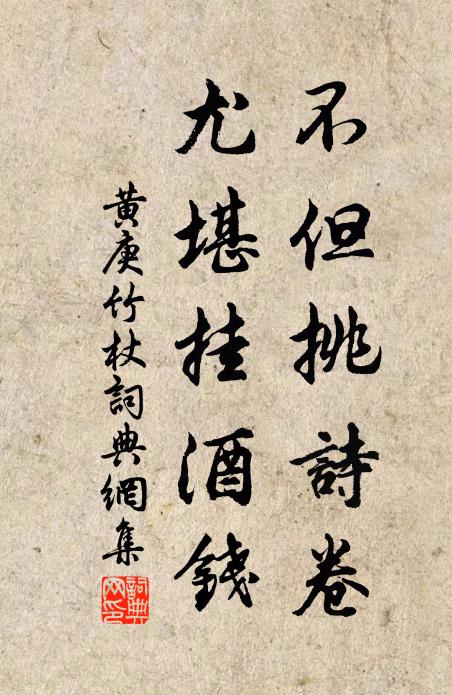 不但挑詩卷
尤堪挂酒錢
黃庚竹杖詞典網集
詞典網印